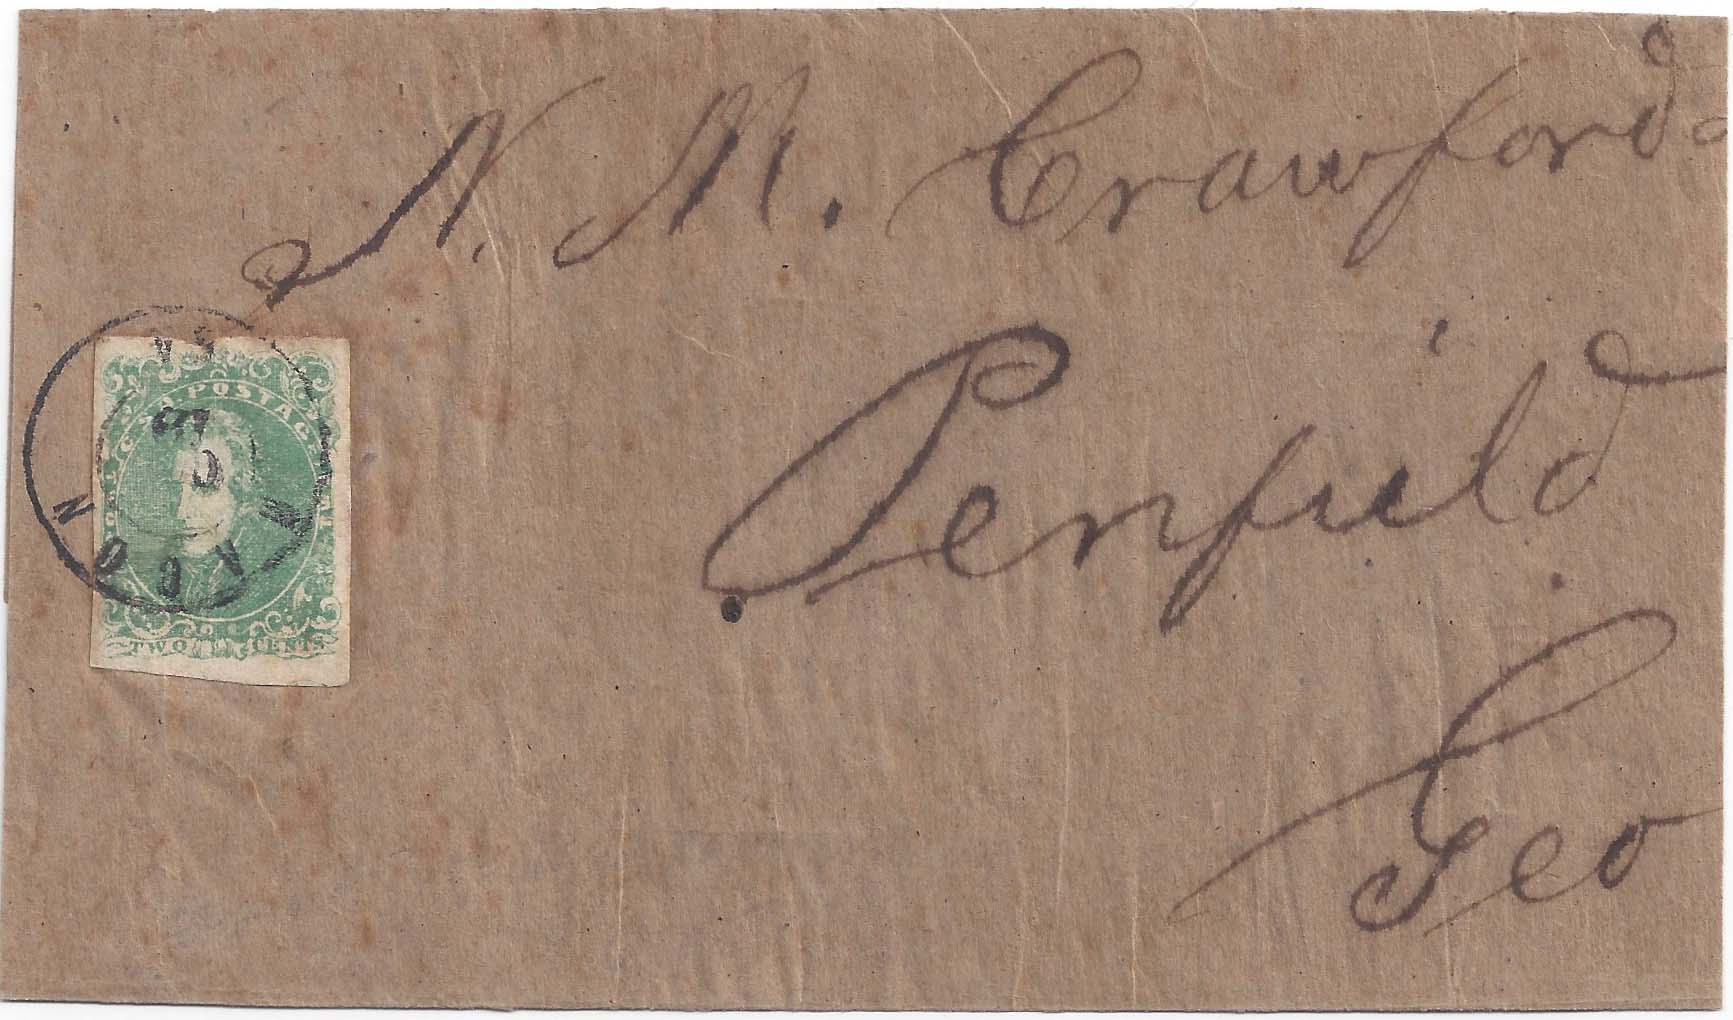 N. M. Crawford
Penfield
Geo
POSTAG
TWO CENTS
MACON